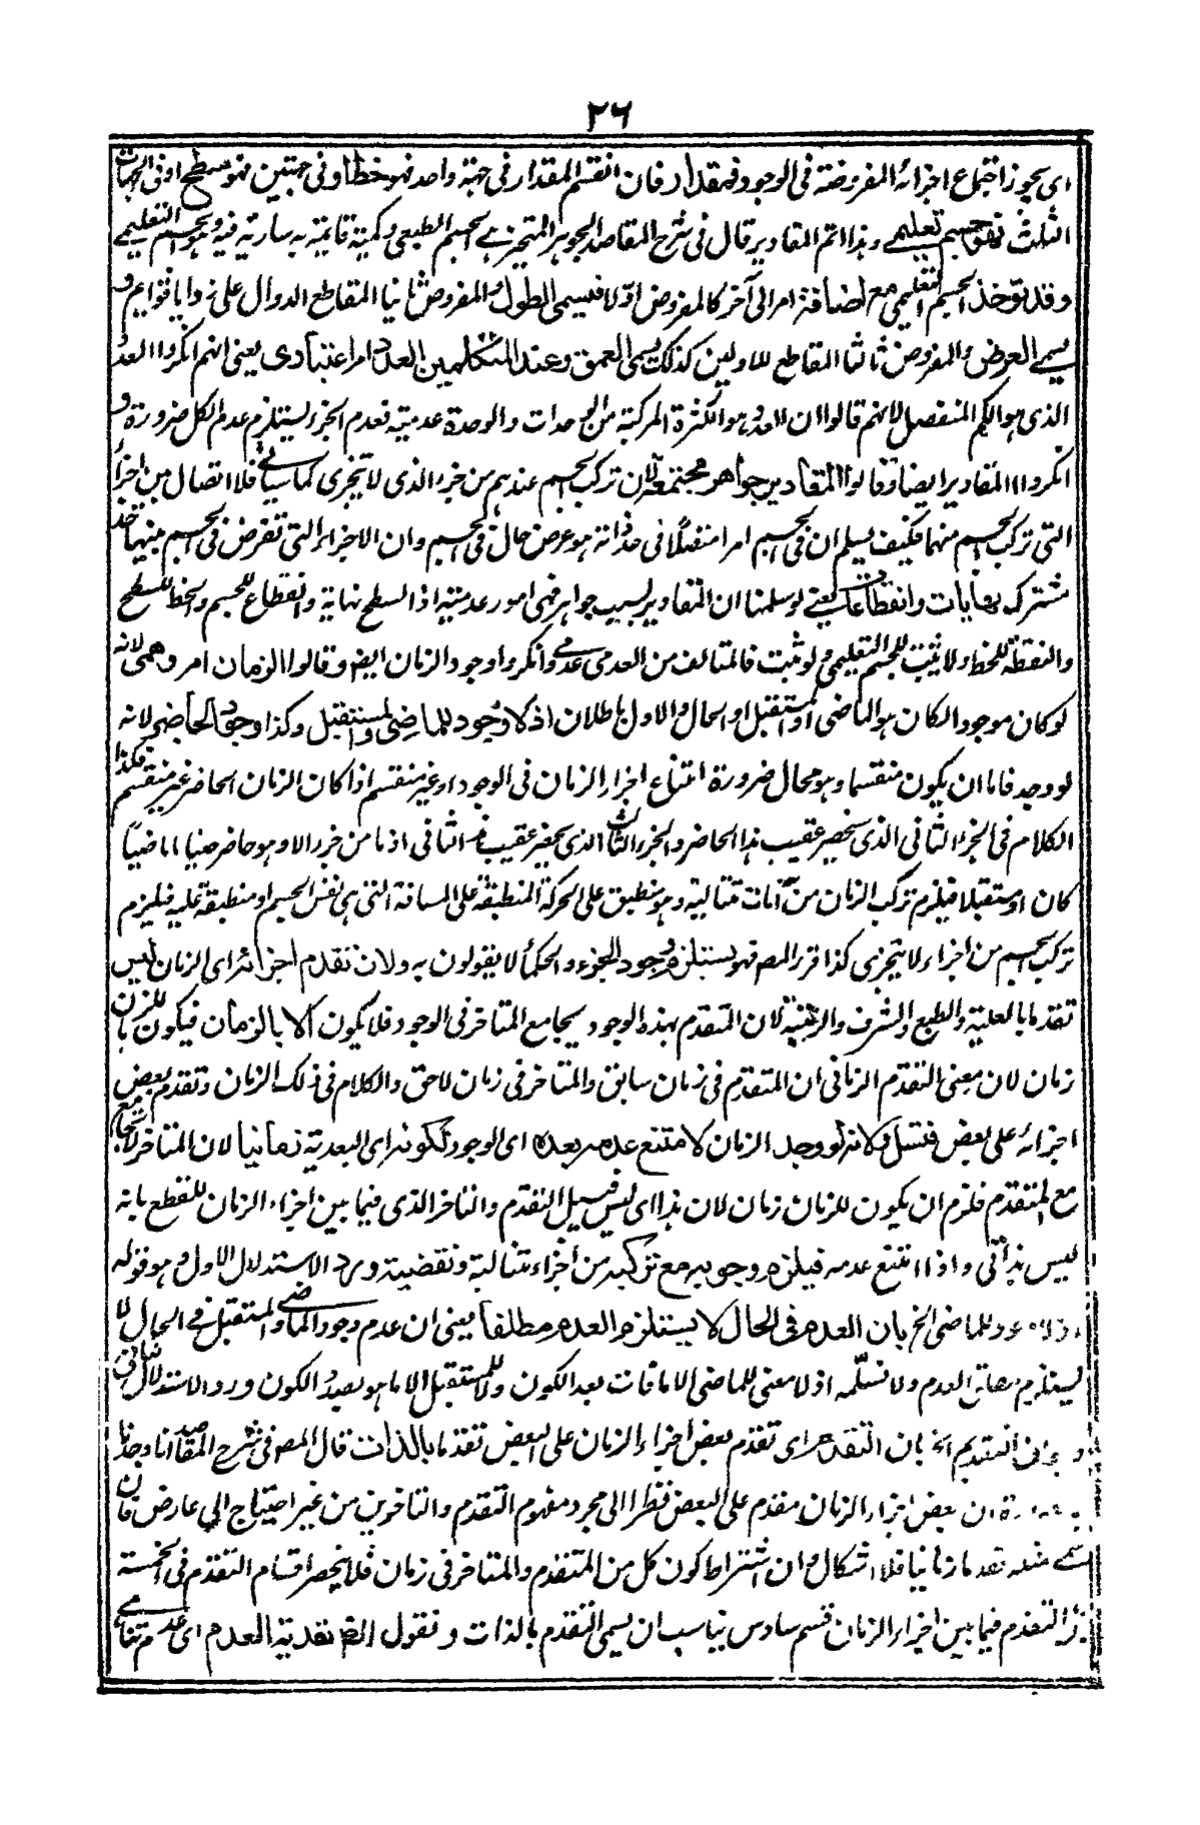 ٢٦
اى يجوز اجتماع اجزائه المفروضة فى الوجود فمقدار فان انقسم المقدار فى جهة واحد فهو خط او فى جهتين فهو سطح او فى الجهات
الثلث فهو جسم تعليمى وهذا اتم المقادير قال فى شرح المقاصد الجوهر المتحيز هى الجسم الطبعى وكمية قايمة به سارية فيه وهو الجسم التعليمى
وقد تؤخذ الجسم التعليمى مع اضافة امر الى آخر كالمفروض اولا فيسمى الطول والمفروض ثانيا المقاطع الدوال على زوايا قوايم و
يسمى العرض والمفروض ثالثا المقاطع للاولين كذلك يسمى العمق وعند المتكلمين العدد امر اعتبادى يعنى انهم انكروا العدد
الذى هو الكم المنفصل لانهم قالوا ان العدد هو الكثرة المركبة من الوحدات والوحدة عدمية فعدم الجزء يستلزم عدم الكل ضرورة و
انكروا المقادير ايضا وقالوا المقادير جواهر مجتمعة لان تركب الجسم عندهم من جزء الذى لا يتجزى كما سياتى فلا اتصال بين اجزاء
التى تركب الجسم منها فكيف يسلم ان فى الجسم امرا متصلا فى حد ذاته هو عرض حال فى الجسم وان الاجزاء التى تفرض فى الجسم بينها حد
مشترك نهايات وانقطاعات يعنى لو سلمنا ان المقادير ليست جواهر فهى امور عدمية اذ السطح نهاية وانقطاع للجسم والخط للسطح
والنقطة للخط ولا يثبت للجسم التعليمى ولو ثبت فالمتالف من العدمى عدمى وانكروا وجود الزمان ايضا وقالوا الزمان امر وهمى لانه
لو كان موجودا لكان هو الماضى او المستقبل او الحال والاول باطلان اذ لا وجود للماضى والمستقبل وكذا وجود الحاضر لانه
لو وجد فاما ان يكون منقسما وهو محال ضرورة امتناع اجزاء الزمان فى الوجود او غير منقسم اذا كان الزمان الحاضر غير منقسم فكذا
الكلام فى الجزء الثانى الذى يحضر عقيب هذا الحاضر والجزء الثالث الذى يحضر عقيب الثانى اذ ما من جزء الا وهو حاضر حينا ماضيا
كان او مستقبلا فيلزم تركب الزمان من آنات متتالية وهو منطبق على الحركة المنطبقة على المسافة التى هى نفس الجسم او منطبقة عليه فيلزم
تركب الجسم من اجزاء لا يتجزى كذا قرر المص فهو يستلزم وجود الجزء والحكماء لا يقولون به ولان تقدم اجزائه اى الزمان ليس
تقدما بالعلية والطبع والشرف والرتبة لان المتقدم بهذه الوجود يجامع المتاخر فى الوجود فلا يكون الا بالزمان فيكون للزمان
زمان لان معنى التقدم الزمانى ان المتقدم فى زمان سابق والمتاخر فى زمان لاحق والكلام فى ذلك الزمان وتقدم بعض
اجزائه على بعض فتسلسل ولانه لو وجد الزمان لامتنع عدمه بعده اى الوجود لكونه اى البعدية زمانيا لان المتاخر لا يجامع
مع المتقدم فلزم ان يكون للزمان زمان لان هذا اى ليس قبيل التقدم والتاخر الذى فيما بين اجزاء الزمان للقطع بانه
ليس بذاتى واذا امتنع عدمه فيلزم وجوبه مع تركبه من اجزاء متتالية ونقضية ورد الاستدلال الاول وهو قوله
لا وجود للماضى الخ بان العدم فى الحال لا يستلزم العدم مطلقا يعنى ان عدم وجود الماضى والمستقبل فى الحال لا
يستلزم مطلق العدم ولا نسلمه اذ لا معنى للماضى الا ما فات بعد الكون ولا للمستقبل الا ما هو بصدد الكون ورد الاستدلال الثانى
التقديم الخ بان التقدم اى تقدم بعض اجزاء الزمان على البعض تقدما بالذات قال المص فى شرح المقاصد انا وجدنا
ان بعض اجزاء الزمان مقدم على البعض نظرا الى مجرد مفهوم التقدم والتاخر من غير احتياج الى عارض فان
مثله تقدما زمانيا فلا اشكال وان اشتراط كون كل من المتقدم والمتاخر فى زمان فلا يحصر اقسام التقدم فى الخمسة
التقدم فيما بين اجزاء الزمان قسم سادس يناسب ان يسمى التقدم بالذات ونقول العدم اى